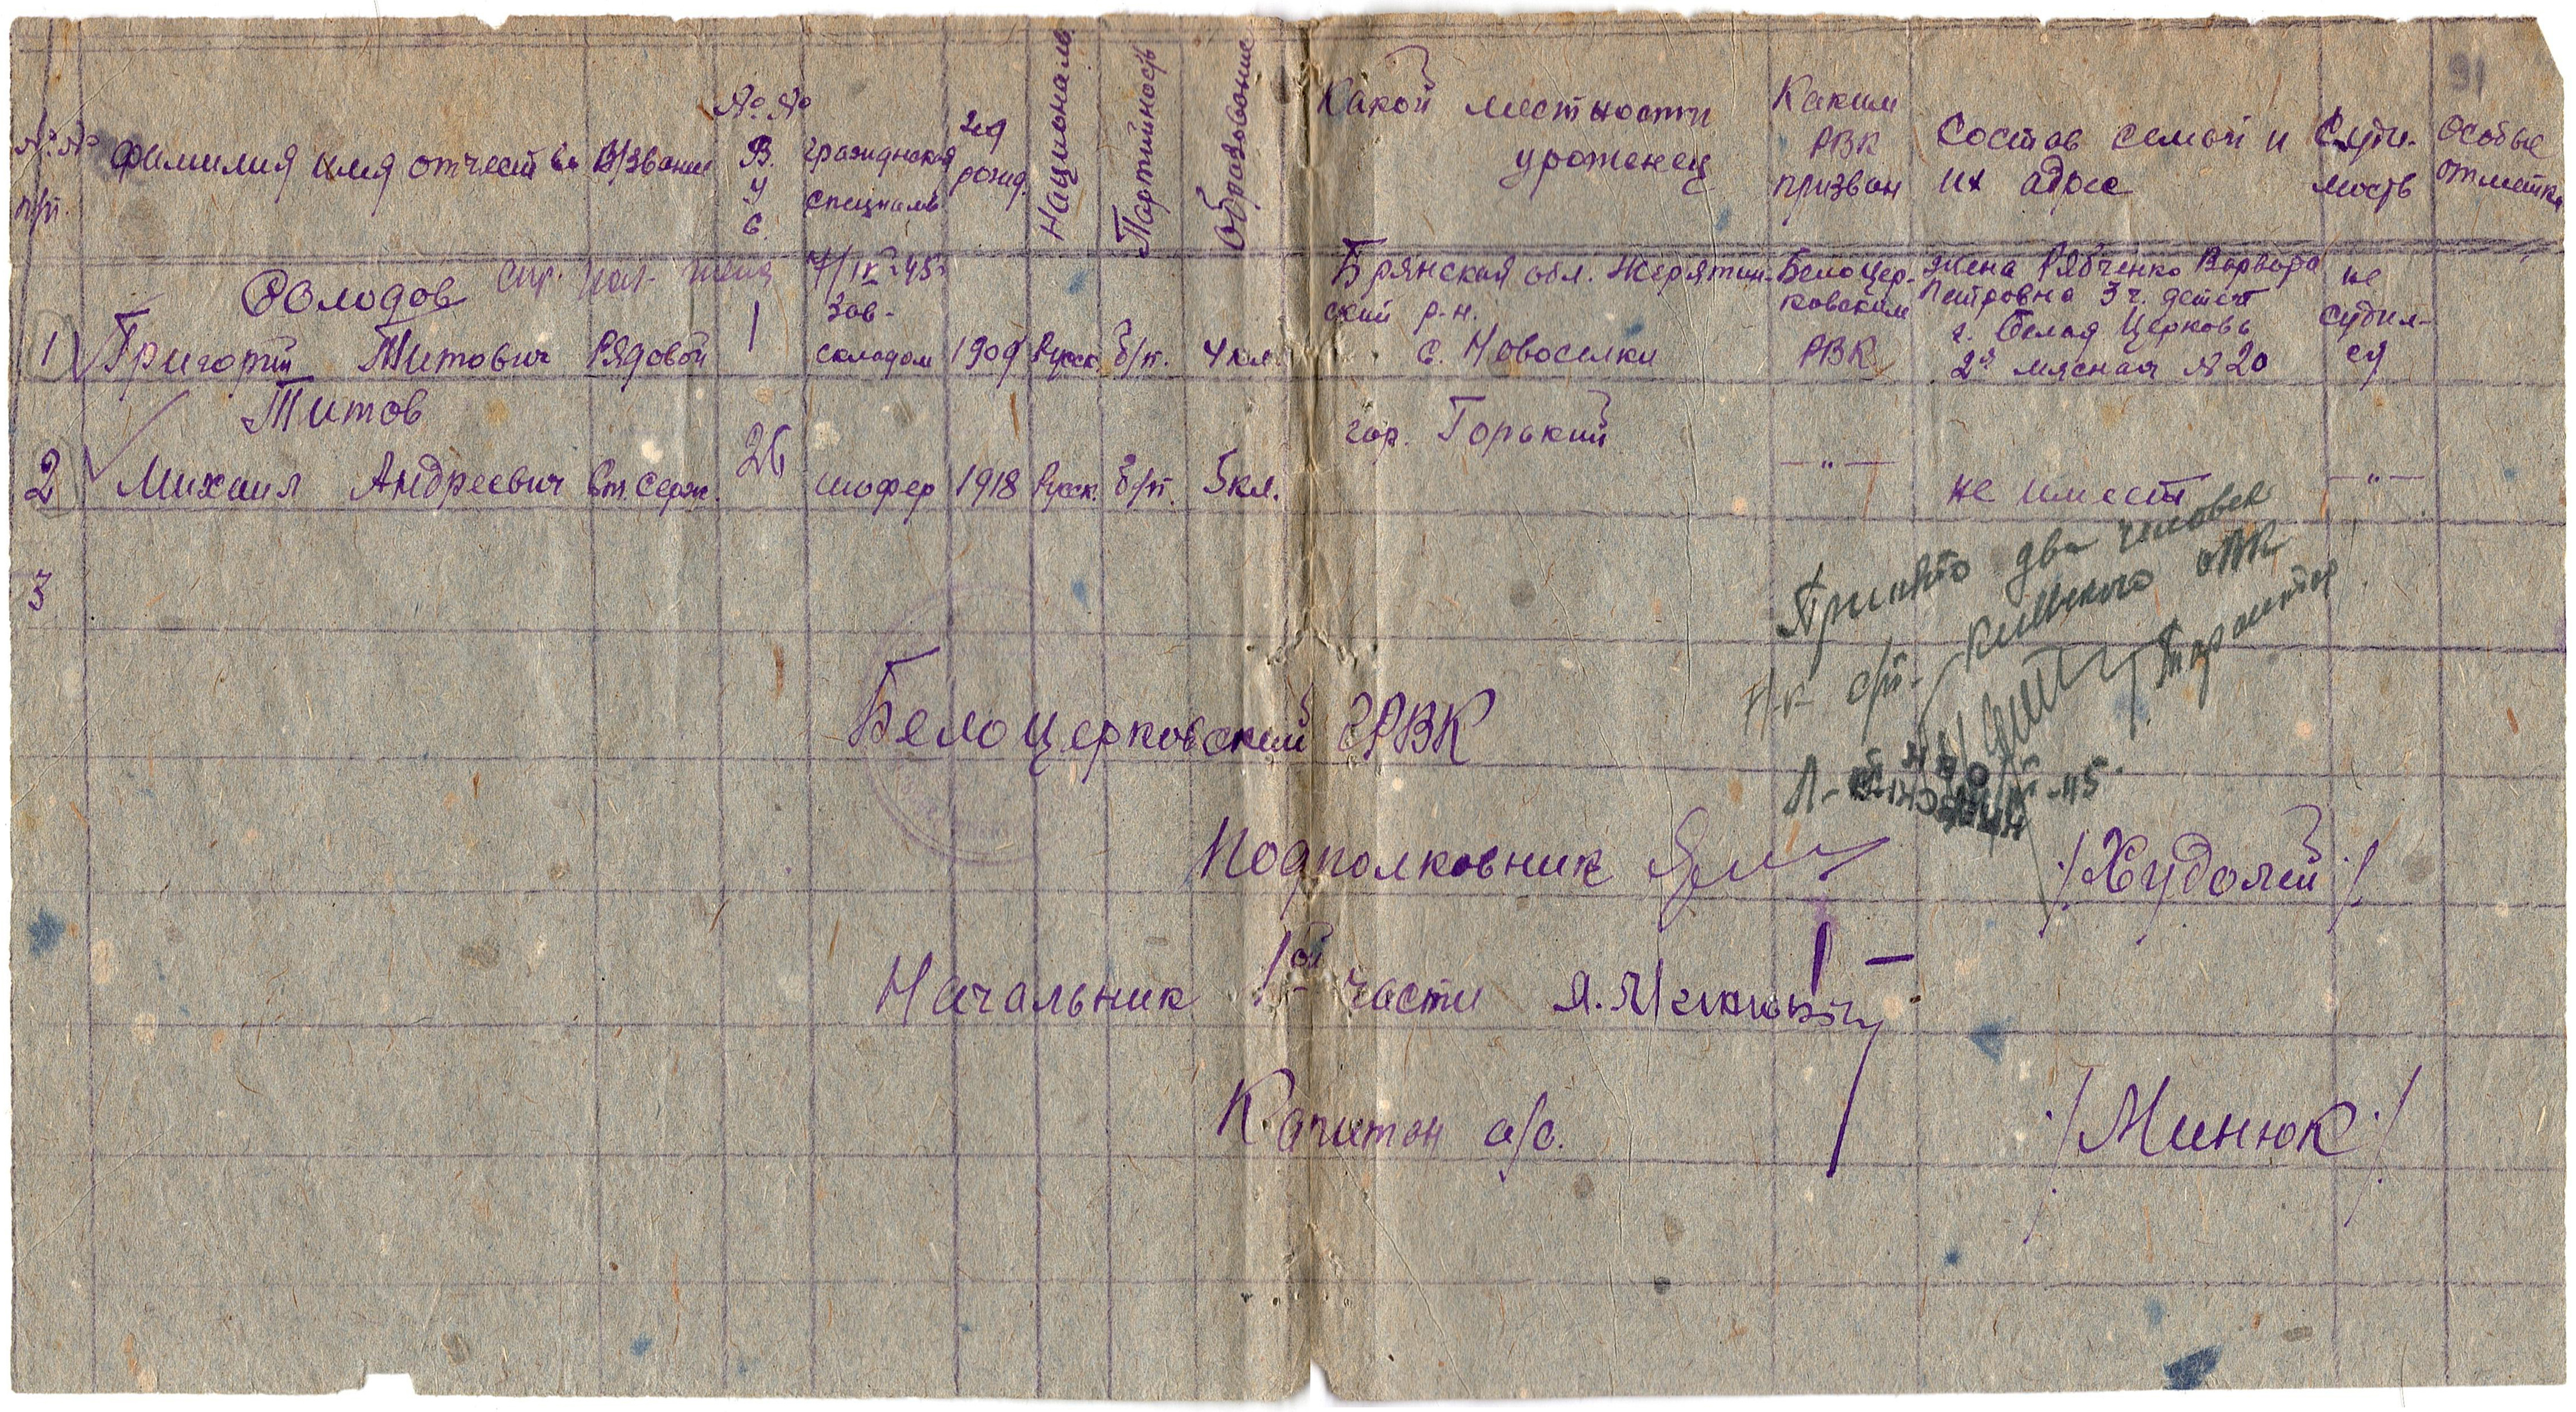 91
№ № п/п.
Фамилия имя отчество
В/звание
№ № В. У С.
Гражданская специальн
год рожд.
Националь
Партийность
Образование
Какой местности уроженец
Каким РВК призван
Состав семьи и их адрес
Суди-мость
особые отметки
1
Володов
7/IX-45
Григорий Титович
Рядовой
1
Зав-
складом
1909
Русск.
б/п.
4 кл.
Брянская обл. Жерятин-
ский р-н.
с. Новоселки
Белоцер-
ковским
РВК
жена Рябченко Варвара
Петровна 3 ч. детей
г. Белая Церковь
2я мясная № 20
не
судил-
ся
2
Титов
Михаил Андреевич
Ст. Серж.
26
шофер
1918
Русск.
б/п.
5 кл.
гор. Горький
—„—
не имеет
—„—
3
Принято два человек
Киевского ОВК
-45
Белоцерковский ГРВК
Подполковник
/Худолей/
Начальник 1ой части
Капитан а/с.
/Минюк/